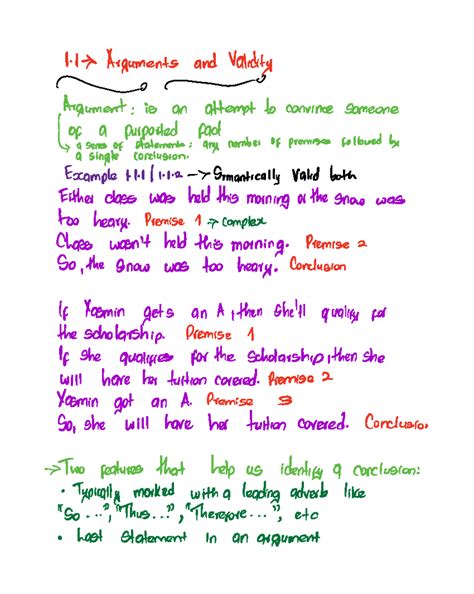 1.1 → Arguments and Validity
Argument: is an attempt to convince someone
of a purported fact
↳ a series of statements: any number of premises followed by
a single conclusion.
Example 1.1.1 / 1.1.2 → Semantically Valid both
Either class was held this morning or the snow was
too heavy. Premise 1 → complex
Class wasn't held this morning. Premise 2
So, the snow was too heavy. Conclusion
If Yasmin gets an A, then she'll qualify for
the scholarship. Premise 1
If she qualifies for the scholarship, then she
will have her tuition covered. Premise 2
Yasmin got an A. Premise 3
So, she will have her tuition covered. Conclusio.
→ Two features that help us identify a conclusion:
• Typically marked with a leading adverb like
"So ...", "Thus...", "Therefore ...", etc
• Last statement in an argument